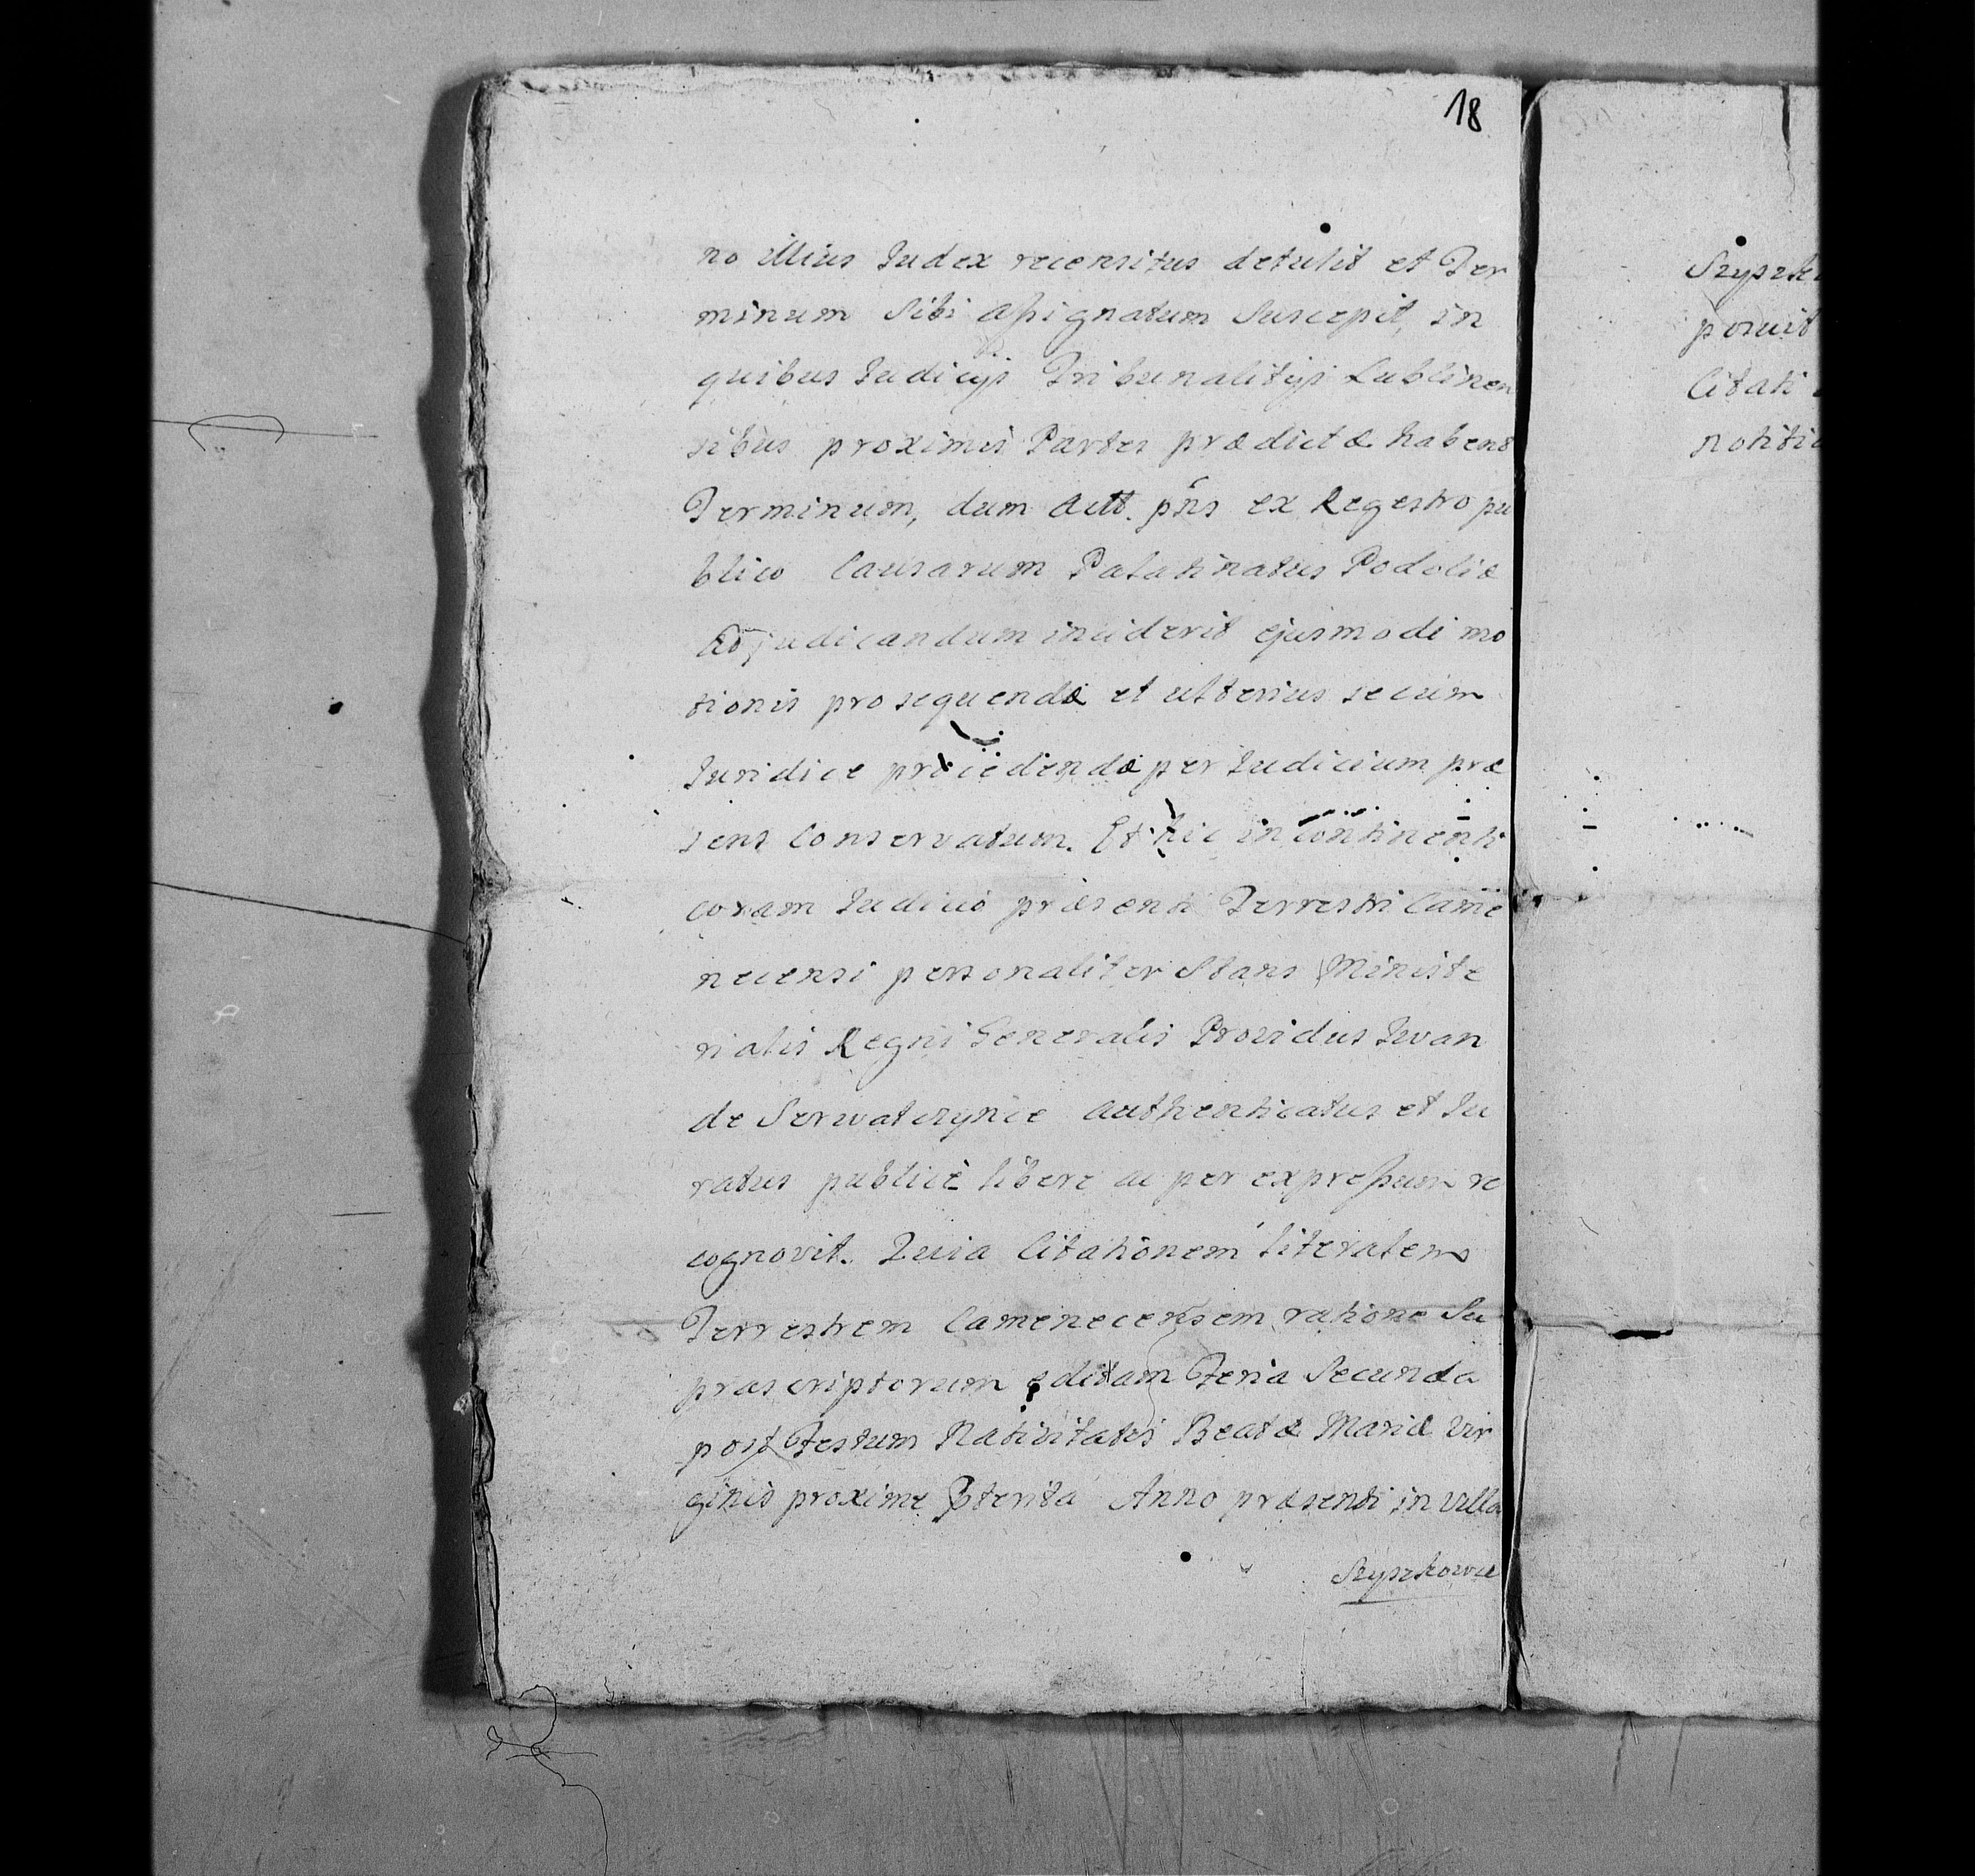 18
no illius Judex recensitus detulit et Ter
minum sibi assignatum suscepit, in
quibus Judicijs Tribunalitijs Lublinen
sibus proximis Partes prædictæ habent
Terminum, dum actt. pñs ex Regestro pu
blico Causarum Palatinatus Podoliæ
adjudicandum inciderit ejusmodi mo
tionis prosequendæ et ulterius secum
Juridice procedendæ per Judicium præ
sens conservatum. Et hic incontinenti
coram Judicio præsenti Terrestri Came
necensi personaliter Stans Ministe
rialis Regni Generalis Providus Iwan
de Serwatczynce authenticatus et Ju
ratus publicè libere ac per expressum re
cognovit. Quia Citationem literalem
Terrestrem Camenecensem ratione Su
prascriptorum editam Feria Secunda
post Festum Nativitatis Beatæ Mariæ Vir
ginis proxime Pterita Anno præsenti in Villa
Szyszkowce
Szyszk
posuit
Citati
notiti